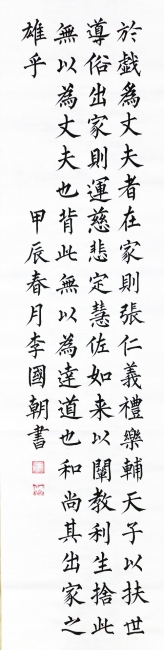 於戲為丈夫者在家則張仁義禮樂輔天子以扶世
導俗出家則運慈悲定慧佐如来以闡教利生捨此
無以為丈夫也背此無以為達道也和尚其出家之
雄乎
甲辰春月李國朝書